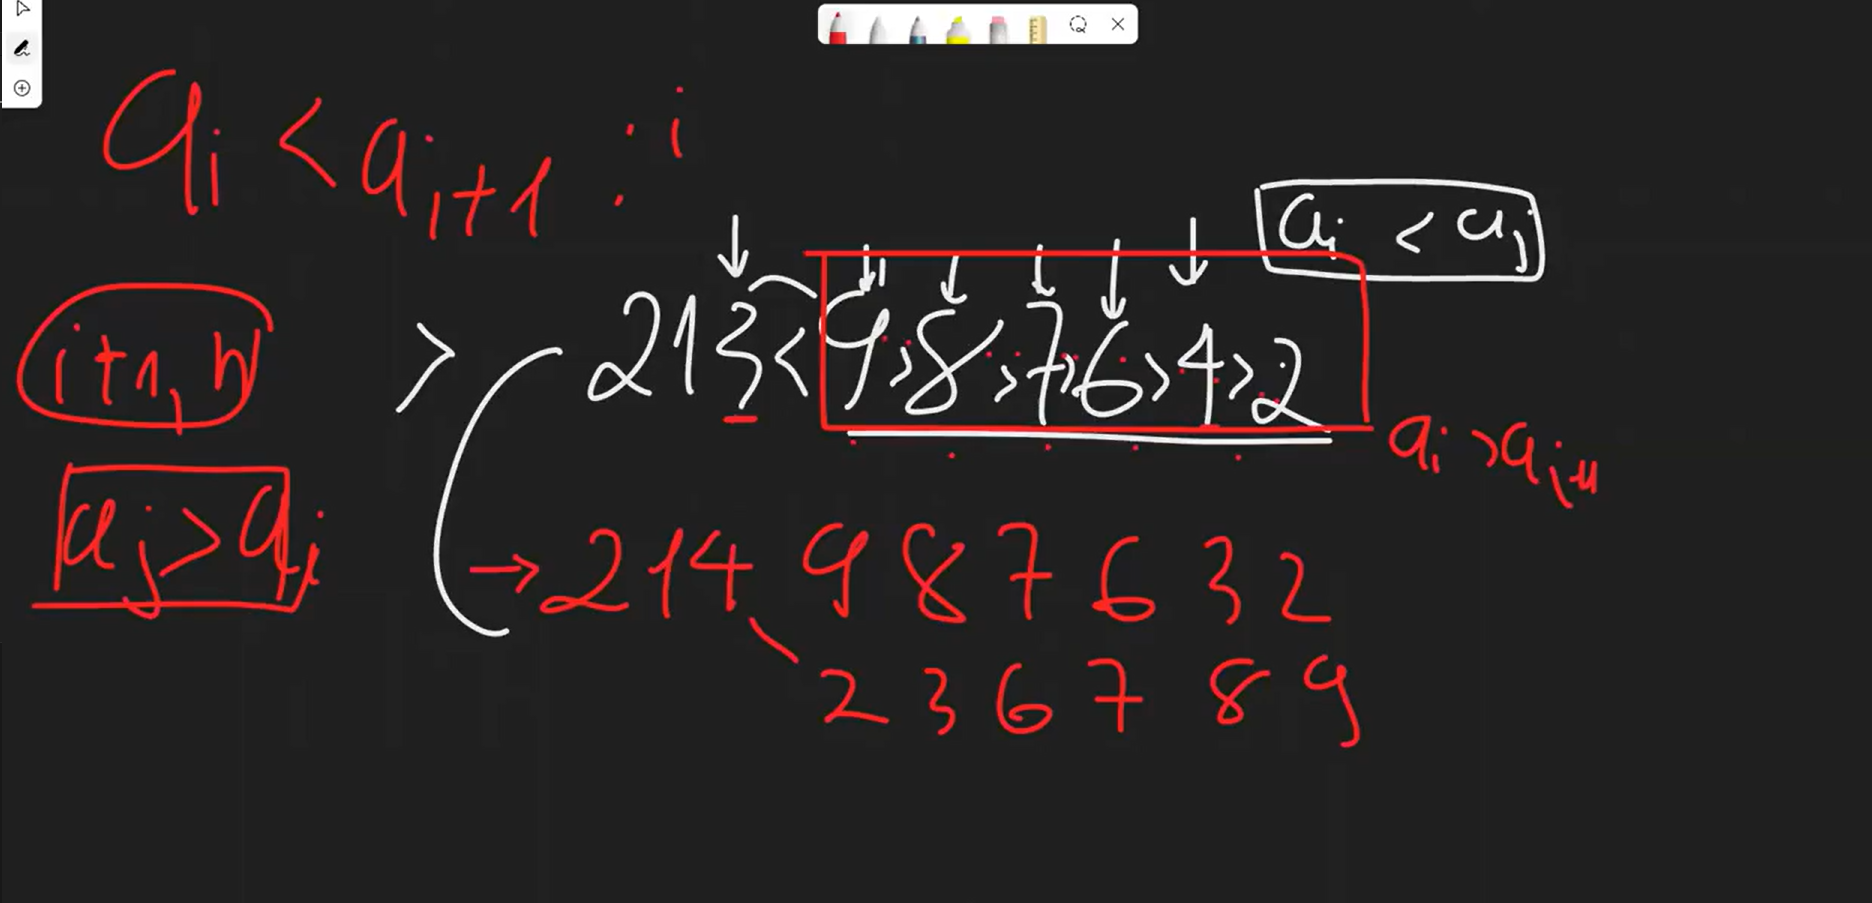 a_i < a_{i+1} : i
a_i < a_j
i+1, n
> 213 < 9 > 8 > 7 > 6 > 4 > 2
a_i > a_{i+1}
a_j > a_i
→ 214 9 8 7 6 3 2
2 3 6 7 8 9